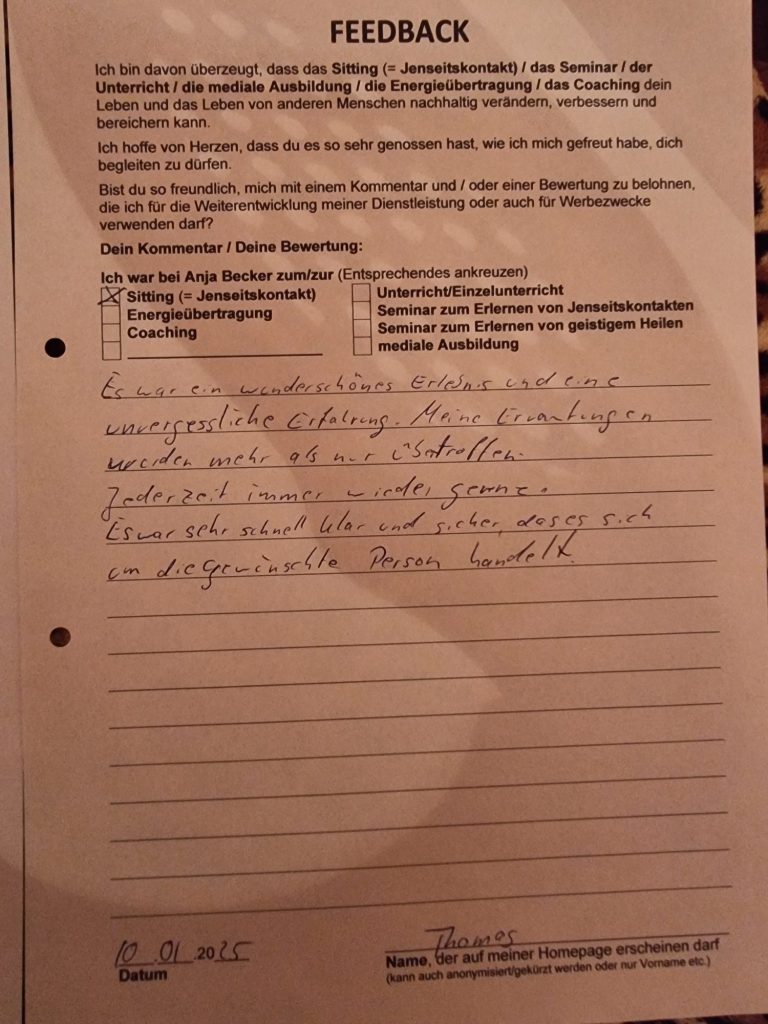 FEEDBACK
Ich bin davon überzeugt, dass das Sitting (= Jenseitskontakt) / das Seminar / der
Unterricht / die mediale Ausbildung / die Energieübertragung / das Coaching dein
Leben und das Leben von anderen Menschen nachhaltig verändern, verbessern und
bereichern kann.
Ich hoffe von Herzen, dass du es so sehr genossen hast, wie ich mich gefreut habe, dich
begleiten zu dürfen.
Bist du so freundlich, mich mit einem Kommentar und / oder einer Bewertung zu belohnen,
die ich für die Weiterentwicklung meiner Dienstleistung oder auch für Werbezwecke
verwenden darf?
Dein Kommentar / Deine Bewertung:
Ich war bei Anja Becker zum/zur (Entsprechendes ankreuzen)
Sitting (= Jenseitskontakt)
Energieübertragung
Coaching
Unterricht/Einzelunterricht
Seminar zum Erlernen von Jenseitskontakten
Seminar zum Erlernen von geistigem Heilen
mediale Ausbildung
Es war ein wunderschönes Erlebnis und eine
unvergessliche Erfahrung. Meine Erwartungen
werden mehr als nur übertroffen.
Jederzeit immer wieder gerne.
Es war sehr schnell klar und sicher, das es sich
um die gewünschte Person handelt.
10.01.2025
Datum
Thomas
Name, der auf meiner Homepage erscheinen darf
(kann auch anonymisiert/gekürzt werden oder nur Vorname etc.)